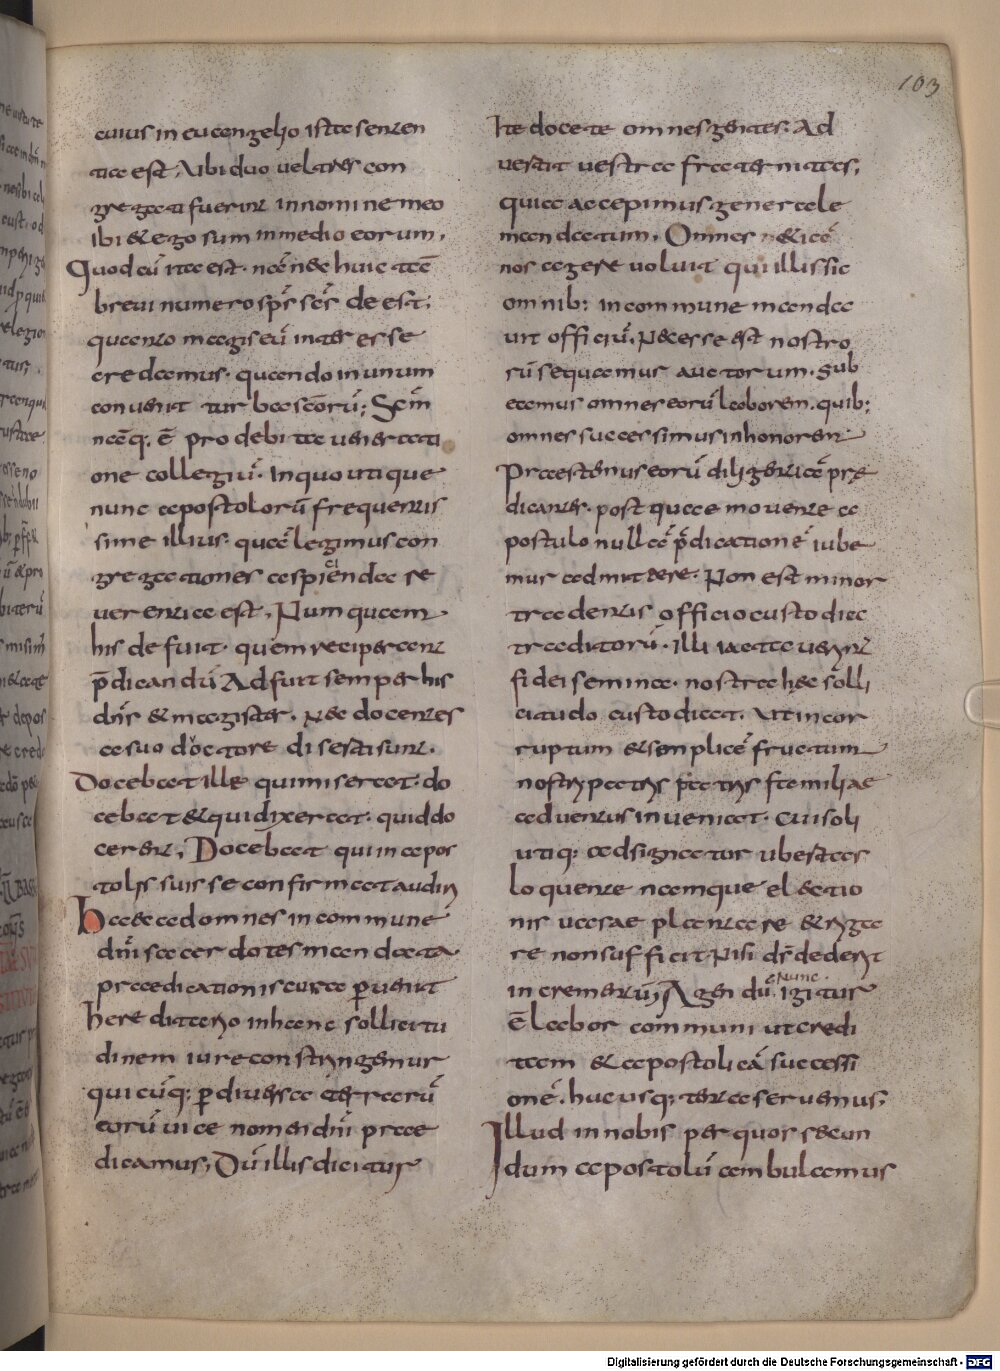 103
cuius in euangelio ista senten
tia est, Ubi duo vel tres con
gregati fuerint in nomine meo
ibi & ego sum in medio eorum.
Quod cū ita est. nā n& huic tā
brevi numero sp̄s sc̄s de est.
quanto magis eū inter esse
credamus. quando in unum
convenit turba sc̄orū; Scim̄
nāq; ē pro debita venerati
one collegiū. In quo utique
nunc apostolorū frequentis
sime illius. quā legimus con
gregationes aspiciēnda re
verentia est, Num quam
his defuit. quem reciperant
p̄dicandū Adfuit semper his
dn̄s & magister. N& docentes
a suo doctore deserti sunt.
Docebat ille qui miserat. do
cebat & qui dixerat. quid do
cerent, Docebat qui in apos
tolis suis se confirmat audiri
Haec ad omnes in commune
dn̄i sacerdotes mandata
praedicationis cura p̄venit
hereditario in hanc sollicitu
dinem iure constringemur
qui cūq; p̄ diversa terrarū
eorū vice nomen dn̄i prae
dicamus, Dū illis dicitur
Ite docete omnes gentes. Ad
vertit vestra fraternitas,
quia accepimus generale
mandatum. Omnes & iā
nos agere voluit qui illis sic
omnib: in commune manda
vit officiū. Necesse est nostro
rū sequamur auctorum. Sub
eamus omnes eorū laborem. quib:
omnes successimus in honorem
Praestemus eorū diligentiā prę
dicantes. post quae movente a
postulo nullā p̄dicationē iube
mur admittere. Non est minor
tradentis officio custodia
traditorū. Illi iacta veniunt
fidei semina. nostra hec solli
citudo custodiat. Ut in cor
ruptum & semplicē fructum
nostri patris p̄atris familiae
adventus inveniat. Cui soli
utiq; adsignatur ubertas
loquente namque electio
nis vasae plantare & riga
re non sufficit Nisi ds̄ dederit
Nunc
in crementū, Agendū. igitur
ē labor communi ut credi
tam & apostolicā successi
onē. huc usq; tam servemus.
Illud in nobis per quos secun
dum apostolū ambulamus
Digitalisierung gefördert durch die Deutsche Forschungsgemeinschaft - DFG